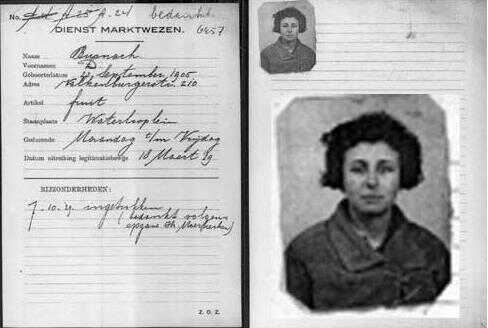 No. A 25 A. 24 bedankt.
6457
DIENST MARKTWEZEN.
Naam Busnach
Voornamen D
Geboortedatum September, 1905
Adres Valkenburgerstr. 210
Artikel fruit
Staanplaats Waterlooplein
Gedurende Maandag t/m Vrijdag
Datum uitreiking legitimatiebewijs 18 Maart 39
BIJZONDERHEDEN:
7. 10. 41 ingetrokken
(bedankt volgens
opgave
Z. O. Z.